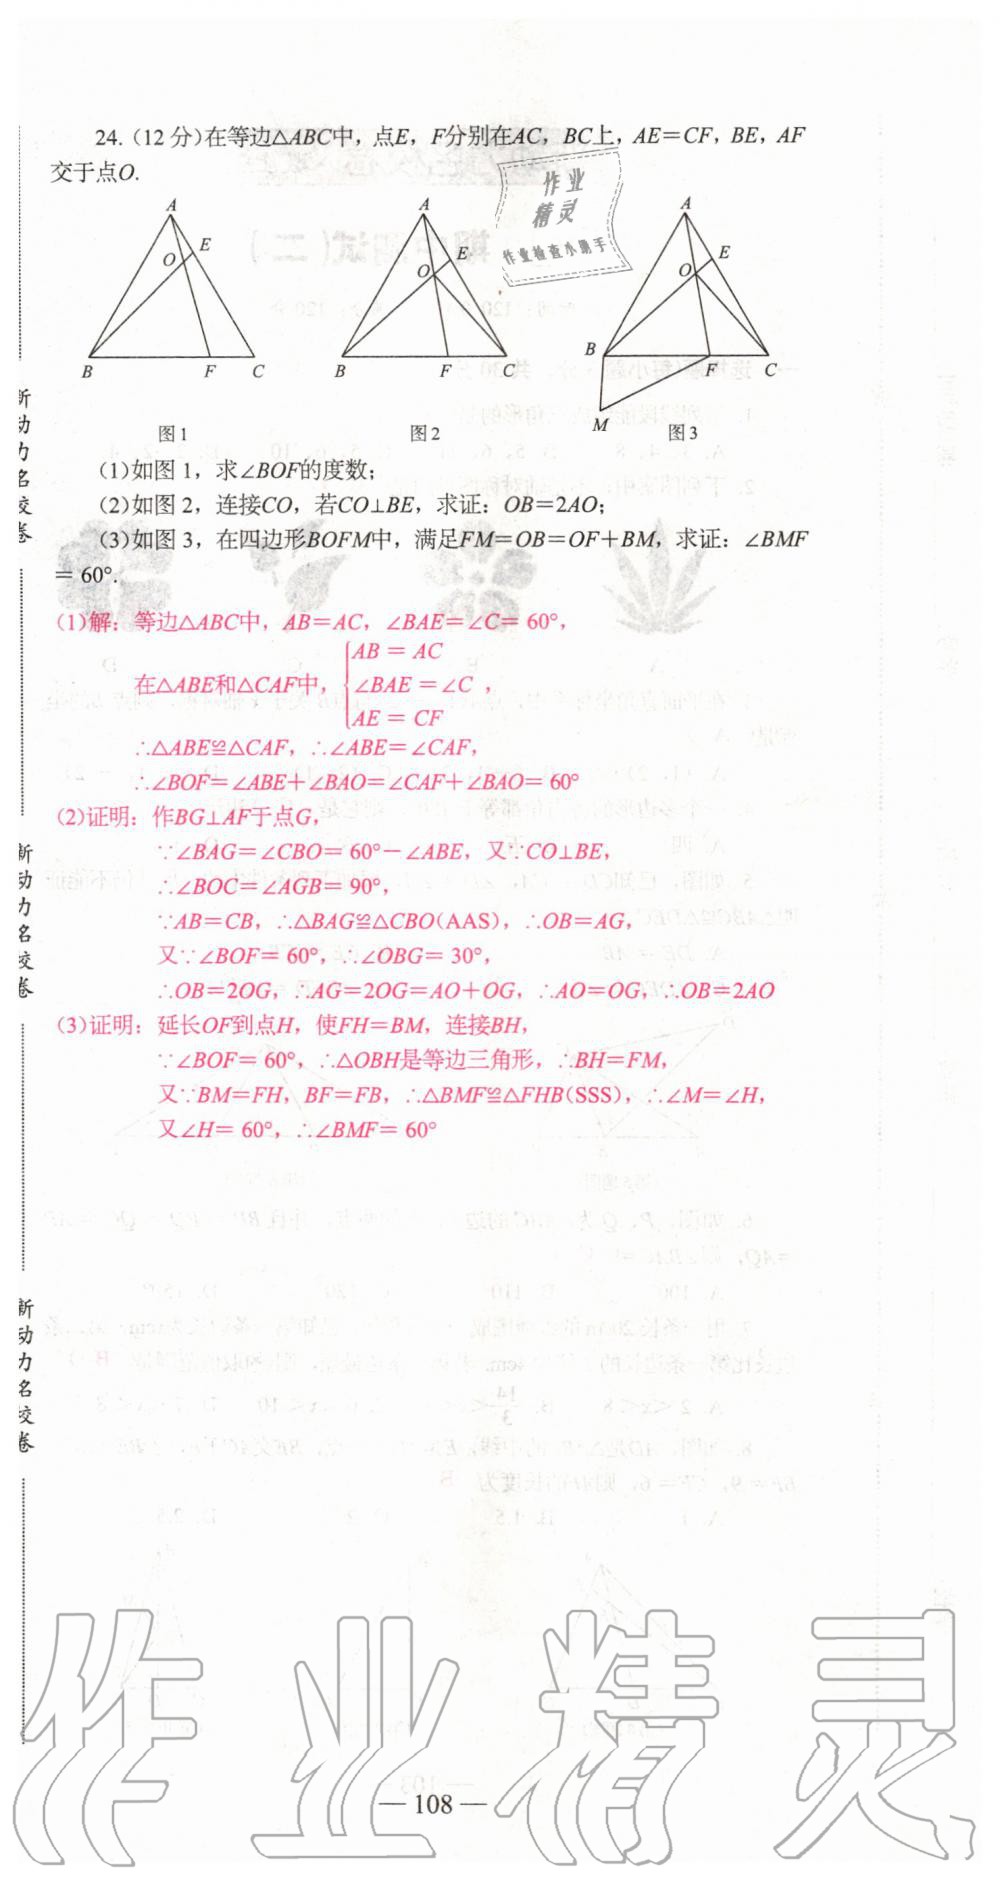 24.（12分）在等边△ABC中，点E，F分别在AC，BC上，AE＝CF，BE，AF
交于点O.
作业
精灵
作业检查小助手
A
E
O
B
F
C
图1
A
E
O
B
F
C
图2
A
E
O
B
F
C
M
图3
（1）如图1，求∠BOF的度数；
（2）如图2，连接CO，若CO⊥BE，求证：OB＝2AO；
（3）如图3，在四边形BOFM中，满足FM＝OB＝OF＋BM，求证：∠BMF
＝60°.
（1）解：等边△ABC中，AB＝AC，∠BAE＝∠C＝60°，
在△ABE和△CAF中，
AB＝AC
∠BAE＝∠C，
AE＝CF
∴△ABE≌△CAF，∴∠ABE＝∠CAF，
∴∠BOF＝∠ABE＋∠BAO＝∠CAF＋∠BAO＝60°
（2）证明：作BG⊥AF于点G，
∵∠BAG＝∠CBO＝60°－∠ABE，又∵CO⊥BE，
∴∠BOC＝∠AGB＝90°，
∵AB＝CB，∴△BAG≌△CBO（AAS），∴OB＝AG，
又∵∠BOF＝60°，∴∠OBG＝30°，
∴OB＝2OG，∴AG＝2OG＝AO＋OG，∴AO＝OG，∴OB＝2AO
（3）证明：延长OF到点H，使FH＝BM，连接BH，
∵∠BOF＝60°，∴△OBH是等边三角形，∴BH＝FM，
又∵BM＝FH，BF＝FB，∴△BMF≌△FHB（SSS），∴∠M＝∠H，
又∠H＝60°，∴∠BMF＝60°
新动力名校卷
新动力名校卷
新动力名校卷
作业精灵
— 108 —